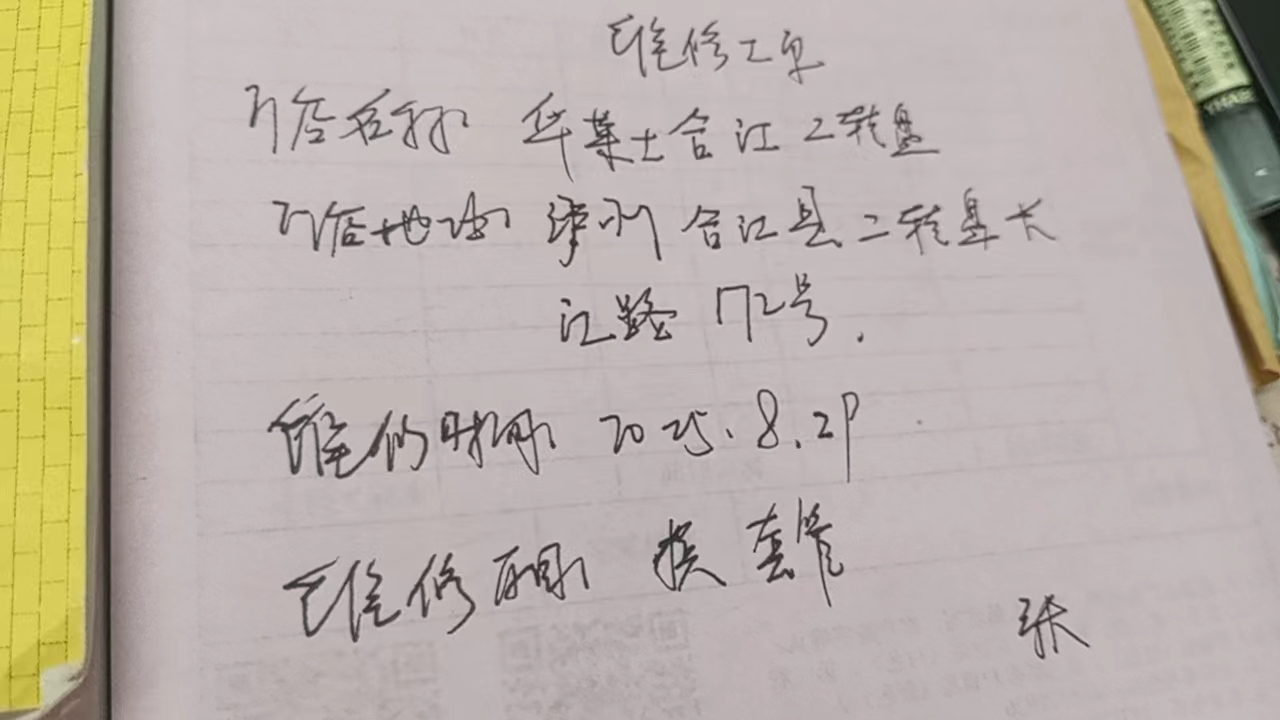 维修工单
门店名称: 华莱士合江二转盘
门店地址: 泸州合江县二转盘长
江路172号.
维修时间: 2025.8.29
维修项目: 换套管
张